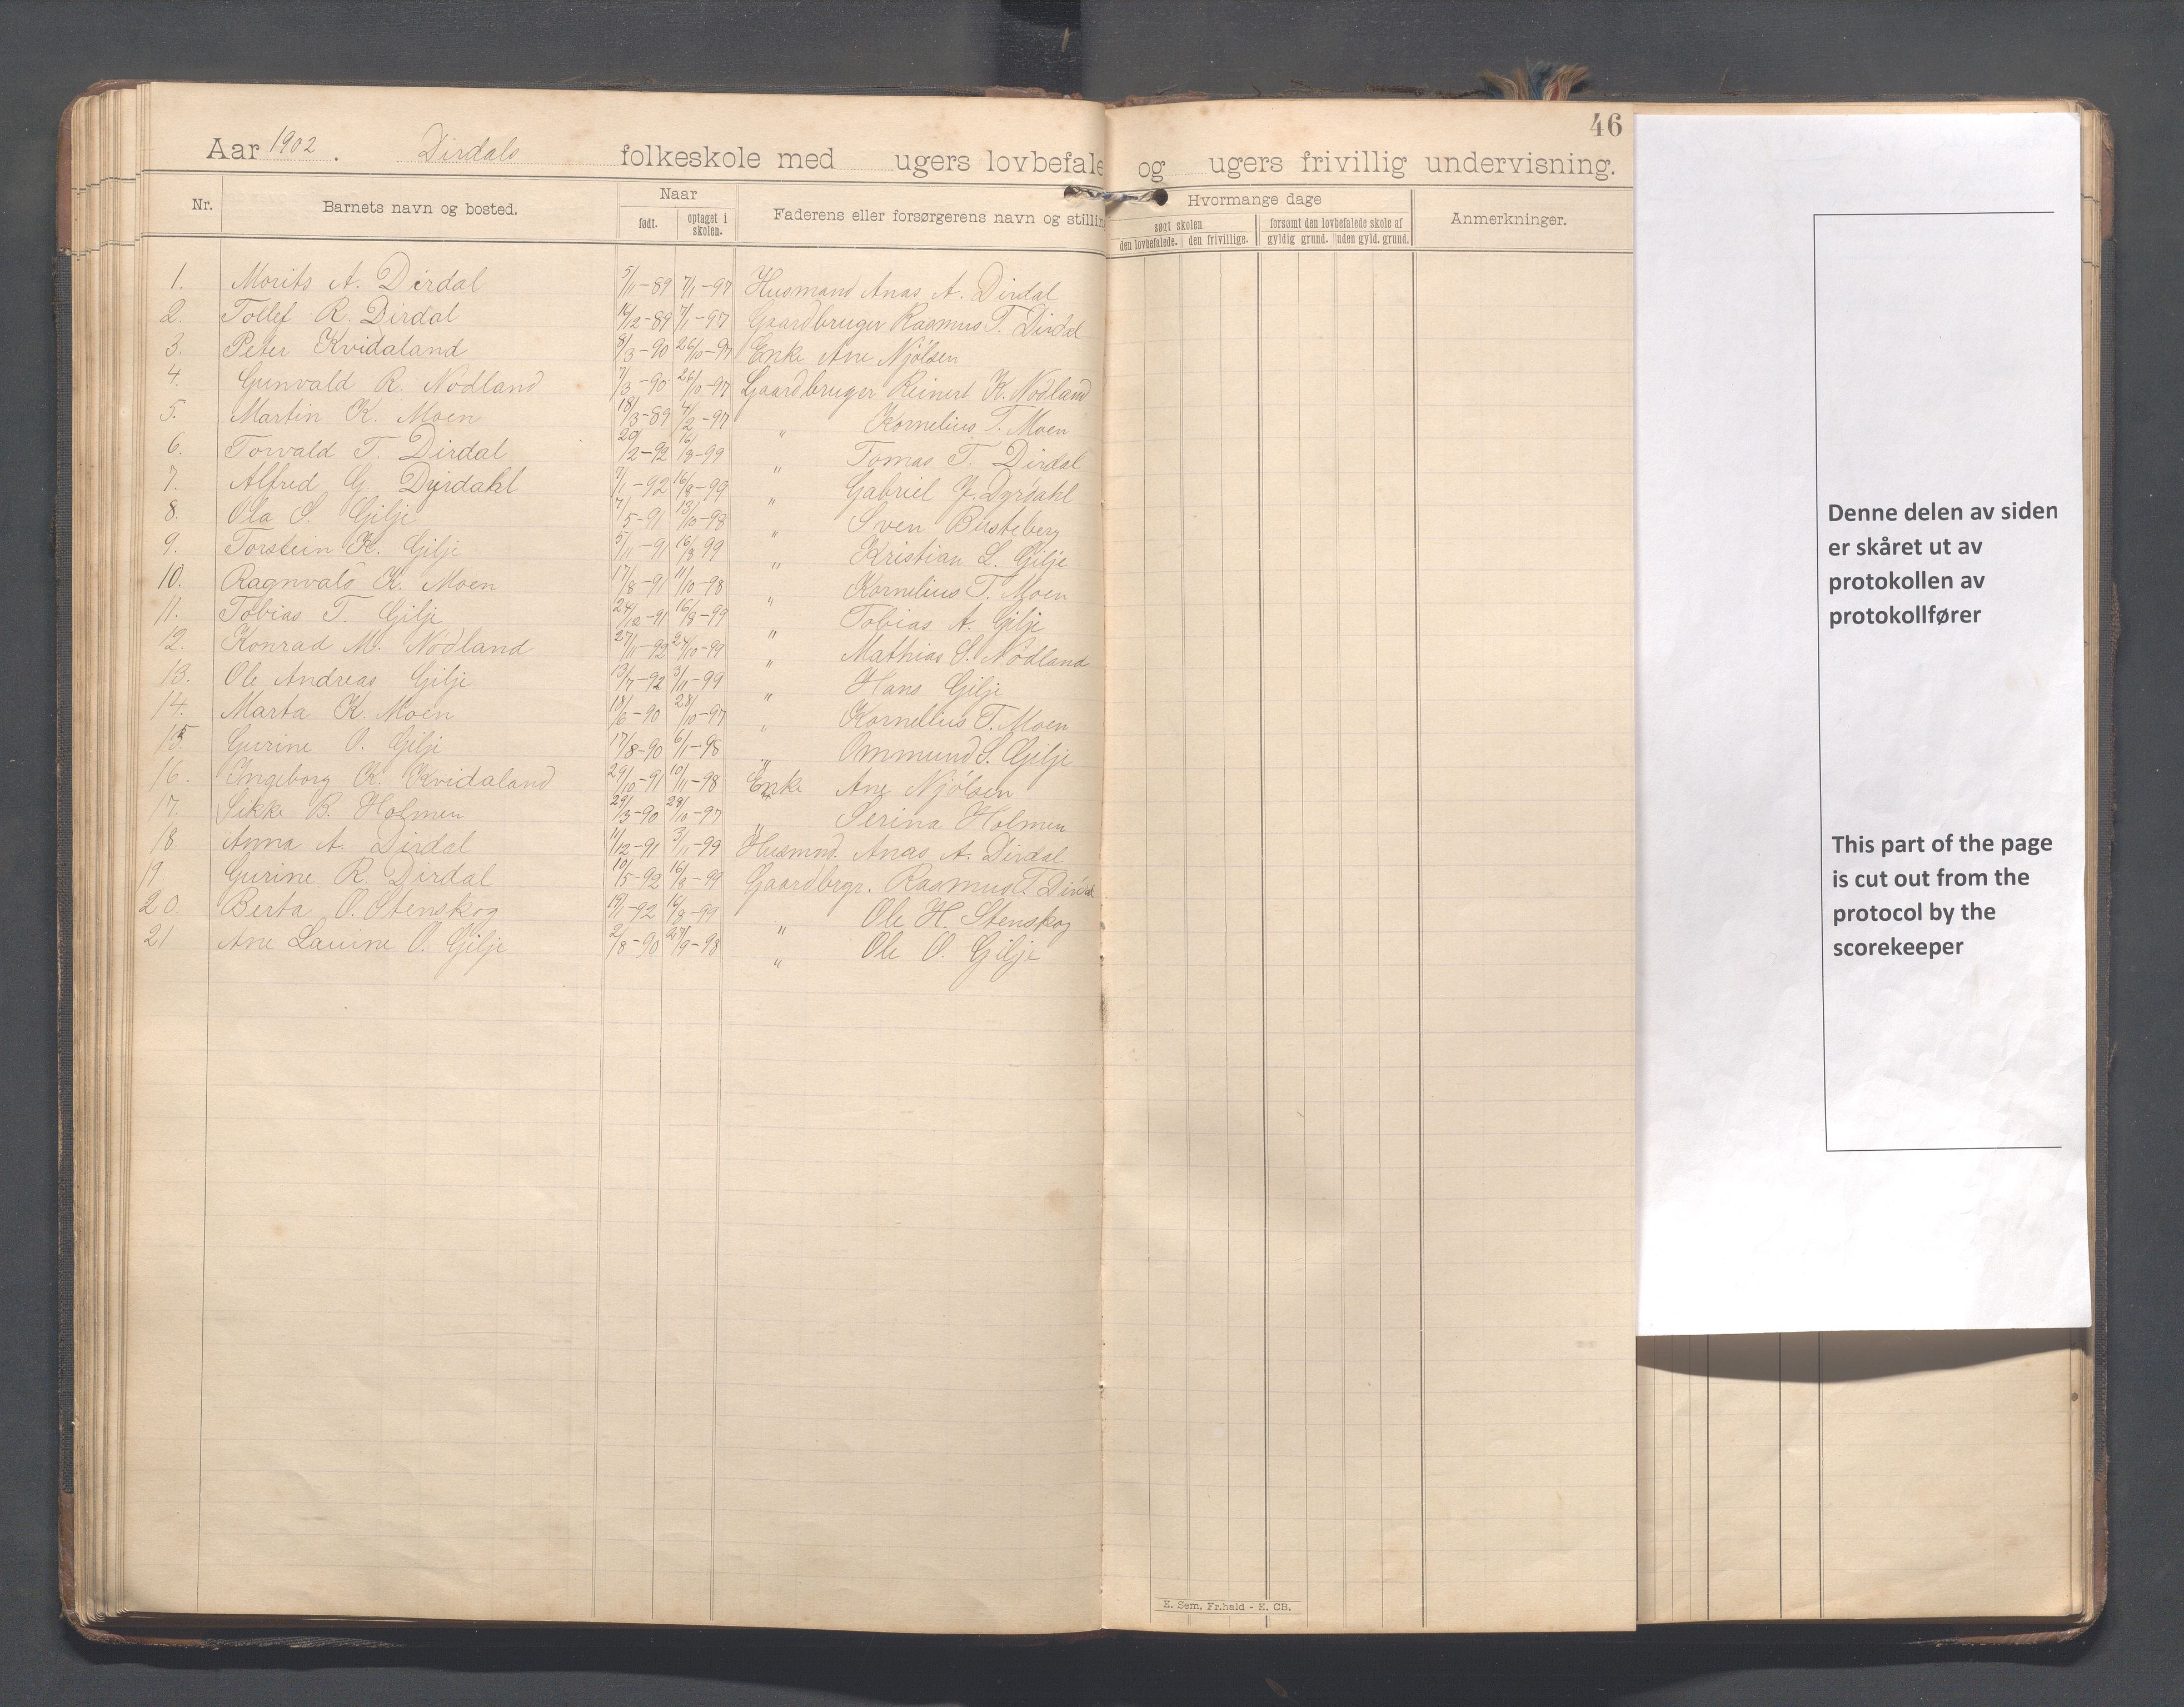 46
Aar 1902. Dirdals folkeskole med ugers lovbefale og ugers frivillig undervisning.
Nr. Barnets navn og bosted. Naar født. optaget i skolen. Faderens eller forsørgerens navn og stillin Hvormange dage søgt skolen den lovbefalede. den frivillige. forsømt den lovbefalede skole af gyldig grund. uden gyld. grund. Anmerkninger.
1. Morits A. Dirdal 5/11-89 7/1-97 Husmand Anas A. Dirdal
2. Tollef R. Dirdal 16/12-89 7/1-97 Gaardbruger Rasmus T. Dirdal
3. Peter Kvidaland 8/3-90 26/10-97 Enke Ane Njølsen
4. Gunvald R. Nodland 7/3-90 26/10-97 Gaardbruger Reinert K. Nødland
5. Martin K. Moen 18/3-89 4/2-97 " Kornelius T. Moen
6. Torvald T. Dirdal 20/2-92 16/8-99 " Tomas T. Dirdal
7. Alfred G. Dyrdahl 7/1-92 16/8-99 " Gabriel J. Dyrdahl
8. Ola S. Gilje 7/5-91 13/10-98 " Sven Busteberg
9. Torstein K. Gilje 5/11-91 16/8 99 " Kristian L. Gilje
10. Ragnvald K. Moen 17/8-91 11/10-98 " Kornelius T. Moen
11. Tobias T. Gilje 24/12-91 16/8-99 " Tobias A. Gilje
12. Konrad M. Nødland 27/11-92 24/10-99 " Mathias S. Nødland
13. Ole Andreas Gilje 13/7-92 3/11-99 " Hans Gilje
14. Marta K. Moen 18/6-90 28/10-97 " Kornelius T. Moen
15 Gurine O. Gilje 17/8-90 6/1-98 " Ommund S. Gilje
16. Ingeborg K. Kvidaland 29/10-91 10/11-98 Enke Ane Njølsen
17. Sikke B. Holmen 29/3-90 28/10-97 " Serina Holmen
18. Anna A. Dirdal 11/12-91 3/11-99 Husmnd. Anas A. Dirdal
19 Gurine R. Dirdal 10/5-92 16/8-99 Gaardbrgr. Rasmus T Dirdal
20. Berta O. Stenskog 19/1-92 16/8-99 " Ole H. Stenskog
21 Ane Lauine O. Gilje 2/8-90 27/9-98 " Ole O. Gilje
E. Sem. Fr.hald - E. CB.
Denne delen av siden
er skåret ut av
protokollen av
protokollfører
This part of the page
is cut out from the
protocol by the
scorekeeper